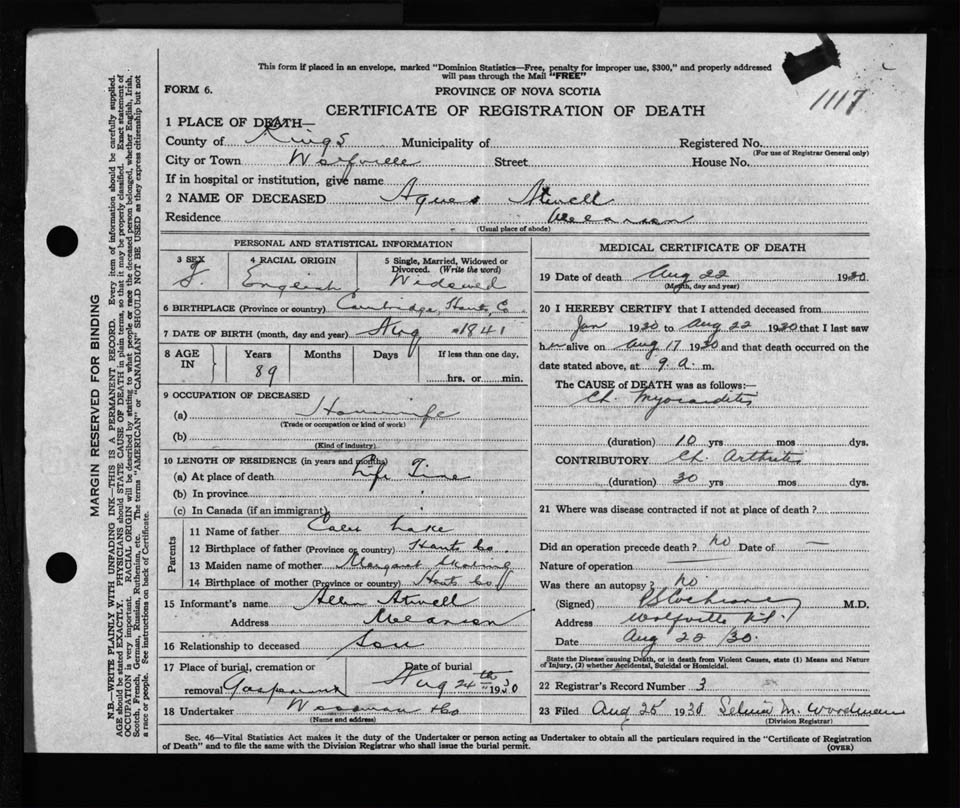 This form if placed in an envelope, marked "Dominion Statistics—Free, penalty for improper use, $300," and properly addressed
will pass through the Mail "FREE"
FORM 6.
PROVINCE OF NOVA SCOTIA
1117
CERTIFICATE OF REGISTRATION OF DEATH
1 PLACE OF DEATH—
County of Kings Municipality of Registered No.
(For use of Registrar General only)
City or Town Wolfville Street House No.
If in hospital or institution, give name
2 NAME OF DECEASED Agnes Atwell
Residence
(Usual place of abode)
PERSONAL AND STATISTICAL INFORMATION
3 SEX 4 RACIAL ORIGIN 5 Single, Married, Widowed or
Divorced. (Write the word)
F. English Widowed
6 BIRTHPLACE (Province or country) Cambridge, Hants Co.
7 DATE OF BIRTH (month, day and year) Aug 1841
8 AGE IN Years Months Days If less than one day,
89 hrs. or min.
9 OCCUPATION OF DECEASED
(a) Housewife
(Trade or occupation or kind of work)
(b)
(Kind of industry)
10 LENGTH OF RESIDENCE (in years and months)
(a) At place of death Life Time
(b) In province
(c) In Canada (if an immigrant)
Parents
11 Name of father Lake
12 Birthplace of father (Province or country) Hants Co.
13 Maiden name of mother Margaret
14 Birthplace of mother (Province or country) Hants Co
15 Informant's name Allen Atwell
Address
16 Relationship to deceased Son
17 Place of burial, cremation or Date of burial
removal Aug 24th 1930
18 Undertaker
(Name and address)
MEDICAL CERTIFICATE OF DEATH
19 Date of death Aug 22 1930
(Month, day and year)
20 I HEREBY CERTIFY that I attended deceased from
Jan 1930 to Aug 22 1930 that I last saw
her alive on Aug 17 1930 and that death occurred on the
date stated above, at 9 a. m.
The CAUSE of DEATH was as follows:—
Ch. Myocarditis
(duration) 10 yrs mos dys.
CONTRIBUTORY Ch. Arthritis
(duration) 30 yrs mos dys.
21 Where was disease contracted if not at place of death?
Did an operation precede death? No Date of —
Nature of operation
Was there an autopsy? No
(Signed) Cochrane M.D.
Address Wolfville N.S.
Date Aug /30.
State the Disease causing Death, or in death from Violent Causes, state (1) Means and Nature
of Injury, (2) whether Accidental, Suicidal or Homicidal.
22 Registrar's Record Number 3
23 Filed Aug 25 1930 M. Woodman
(Division Registrar)
Sec. 46—Vital Statistics Act makes it the duty of the Undertaker or person acting as Undertaker to obtain all the particulars required in the "Certificate of Registration
of Death" and to file the same with the Division Registrar who shall issue the burial permit.
(OVER)
MARGIN RESERVED FOR BINDING
N.B.—WRITE PLAINLY WITH UNFADING INK—THIS IS A PERMANENT RECORD. Every item of information should be carefully supplied.
AGE should be stated EXACTLY. PHYSICIANS should STATE CAUSE OF DEATH in plain terms, so that it may be properly classified. Exact statement of
OCCUPATION is very important. RACIAL ORIGIN will be described by stating to what people or race the deceased person belonged, whether English, Irish,
Scotch, French, German, Russian, Ruthenian, etc. The terms "AMERICAN" or "CANADIAN" SHOULD NOT BE USED as they express citizenship but not
a race or people. See instructions on back of Certificate.